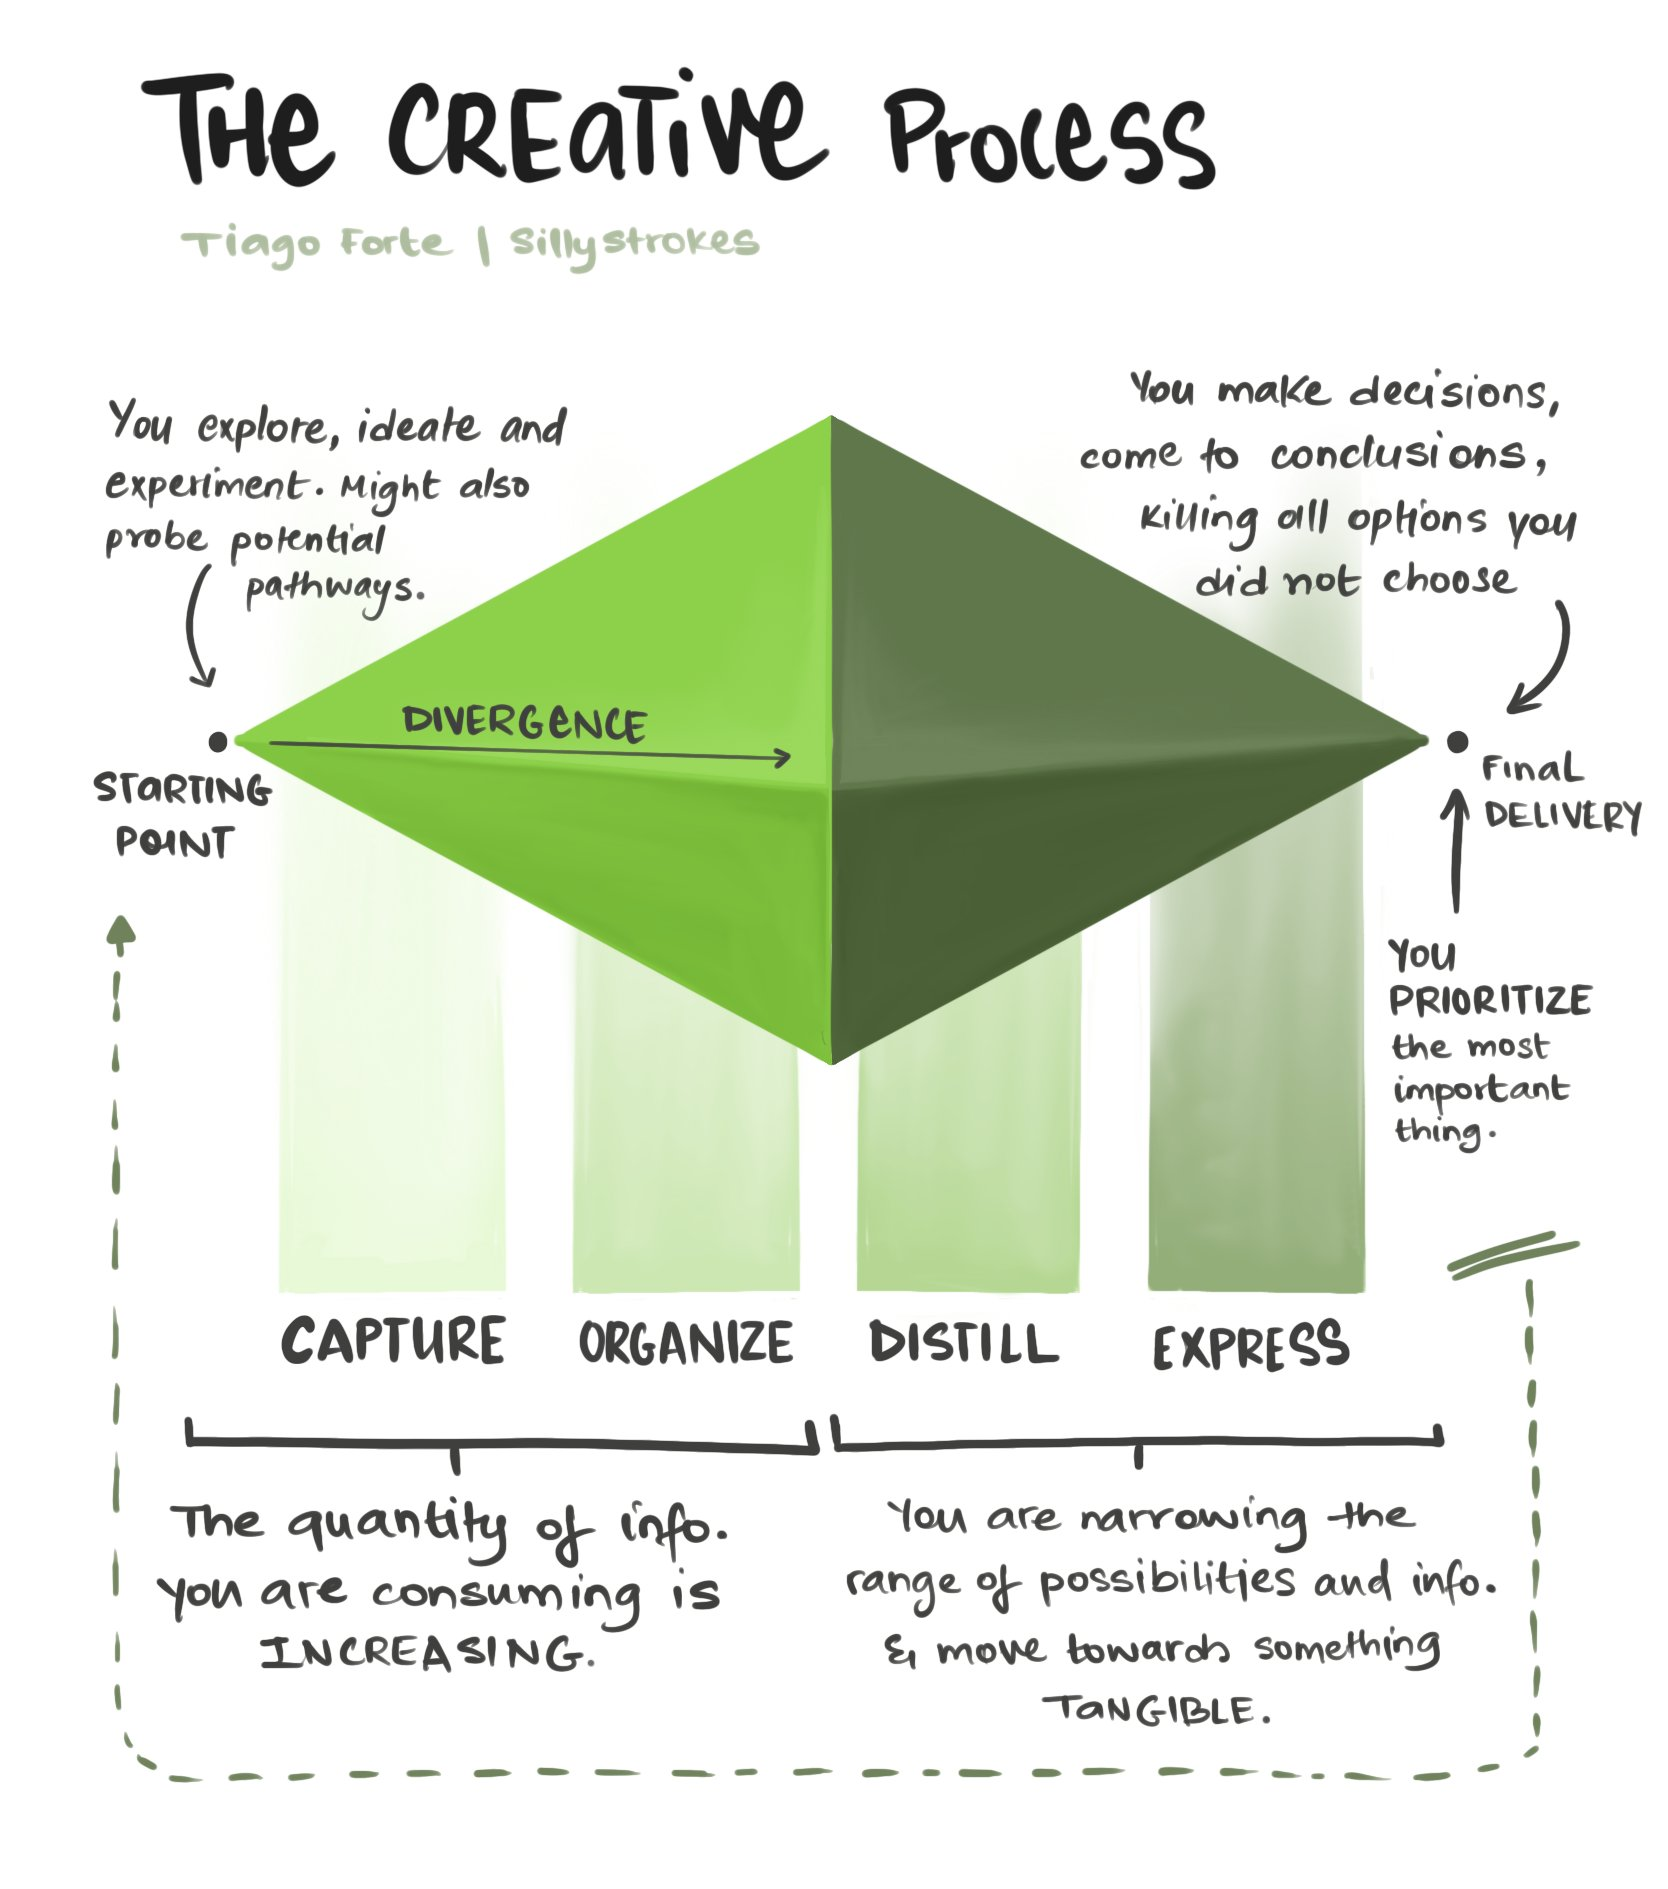 THE CREATIVE PROCESS
Tiago Forte | Sillystrokes
You explore, ideate and
experiment. Might also
probe potential
pathways.
You make decisions,
come to conclusions,
killing all options you
did not choose
DIVERGENCE
STARTING
POINT
FINAL
DELIVERY
You
PRIORITIZE
the most
important
thing.
CAPTURE
ORGANIZE
DISTILL
EXPRESS
The quantity of info.
you are consuming is
INCREASING.
You are narrowing the
range of possibilities and info.
& move towards something
TANGIBLE.